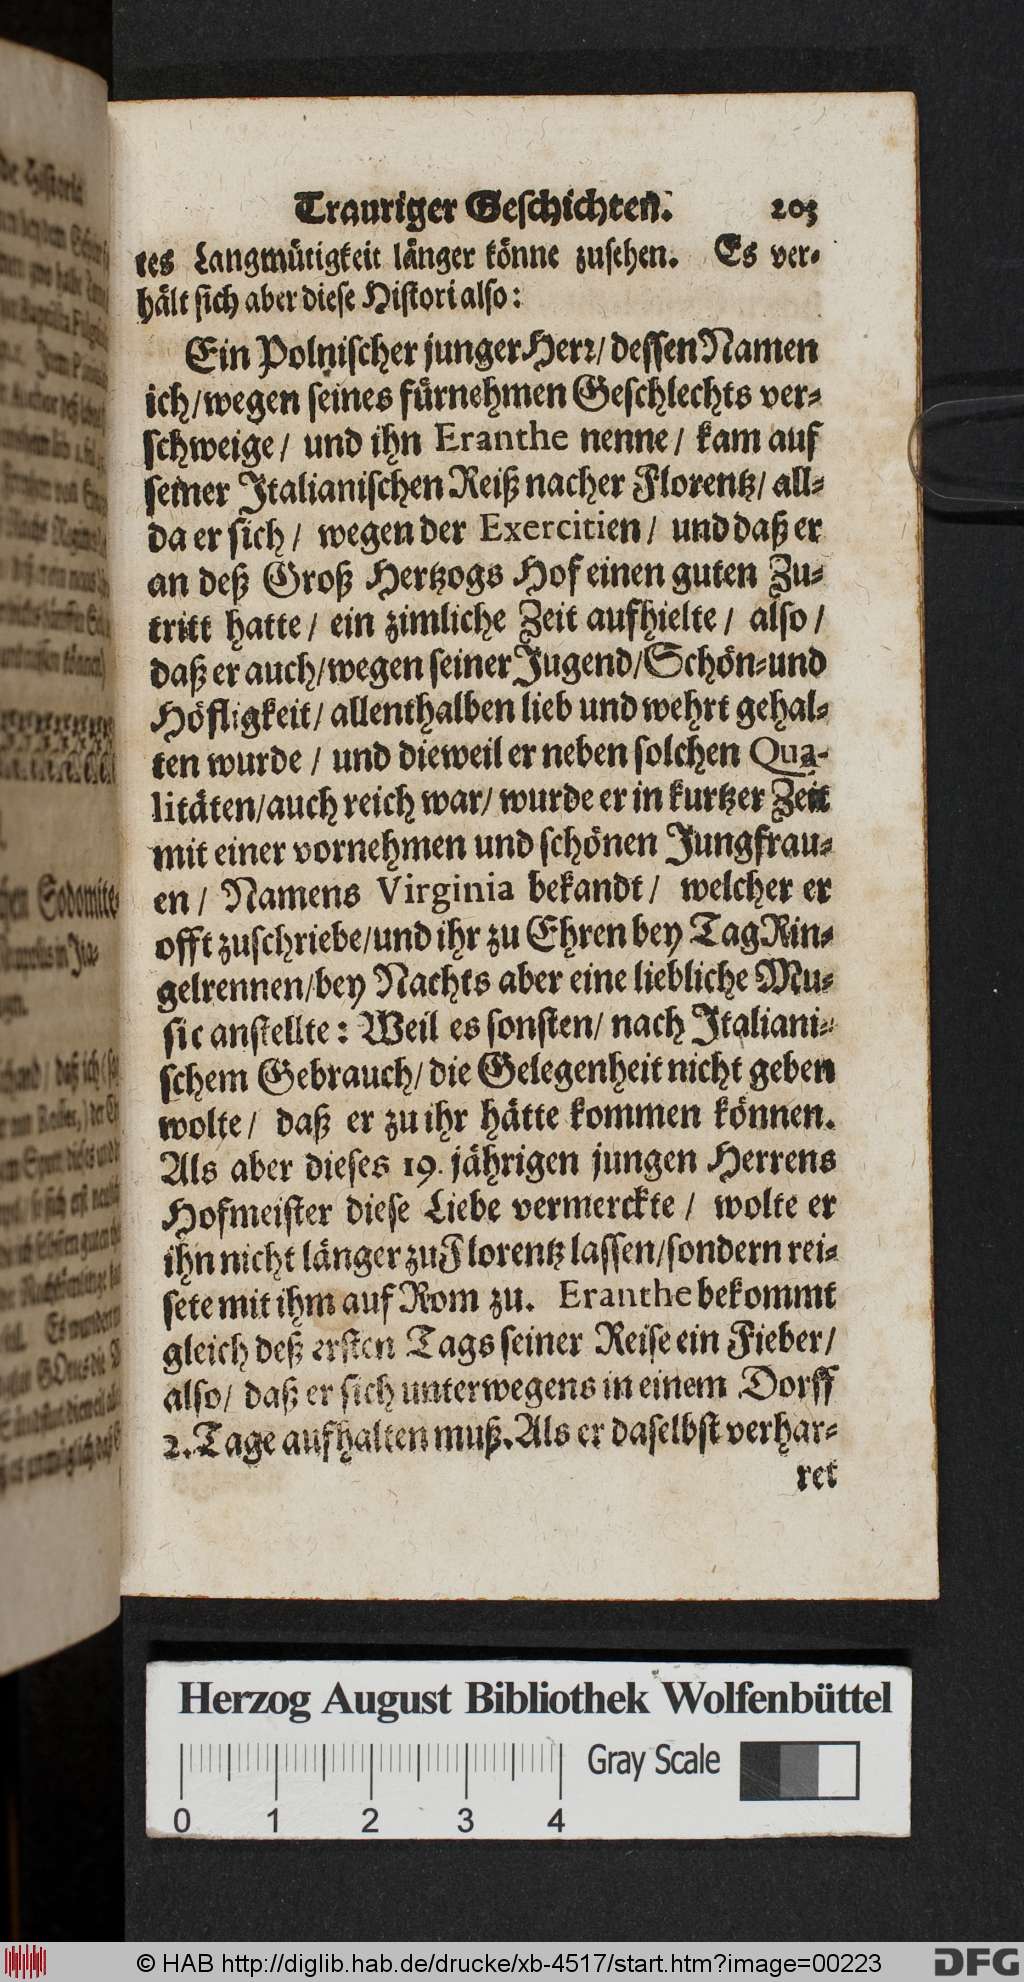 Trauriger Geschichten. 203
tes Langmütigkeit länger könne zusehen. Es ver-
hält sich aber diese Histori also:
Ein Polnischer junger Herr/ dessen Namen
ich/ wegen seines fürnehmen Geschlechts ver-
schweige/ und ihn Eranthe nenne/ kam auf
seiner Italianischen Reiß nacher Florentz/ all-
da er sich/ wegen der Exercitien/ und daß er
an deß Groß Hertzogs Hof einen guten Zu-
tritt hatte/ ein zimliche Zeit aufhielte/ also/
daß er auch/ wegen seiner Jugend/ Schön- und
Höfligkeit/ allenthalben lieb und wehrt gehal-
ten wurde/ und dieweil er neben solchen Qua-
litäten/ auch reich war/ wurde er in kurtzer Zeit
mit einer vornehmen und schönen Jungfrau-
en/ Namens Virginia bekandt/ welcher er
offt zuschriebe/ und ihr zu Ehren bey Tag Rin-
gelrennen/ bey Nachts aber eine liebliche Mu-
sic anstellte: Weil es sonsten/ nach Italiani-
schem Gebrauch/ die Gelegenheit nicht geben
wolte/ daß er zu ihr hätte kommen können.
Als aber dieses 19. jährigen jungen Herrens
Hofmeister diese Liebe vermerckte/ wolte er
ihn nicht länger zu Florentz lassen/ sondern rei-
sete mit ihm auf Rom zu. Eranthe bekommt
gleich deß ersten Tags seiner Reise ein Fieber/
also/ daß er sich unterwegens in einem Dorff
2. Tage aufhalten muß. Als er daselbst verhar-
ret
Herzog August Bibliothek Wolfenbüttel
Gray Scale
0 1 2 3 4
© HAB http://diglib.hab.de/drucke/xb-4517/start.htm?image=00223
DFG